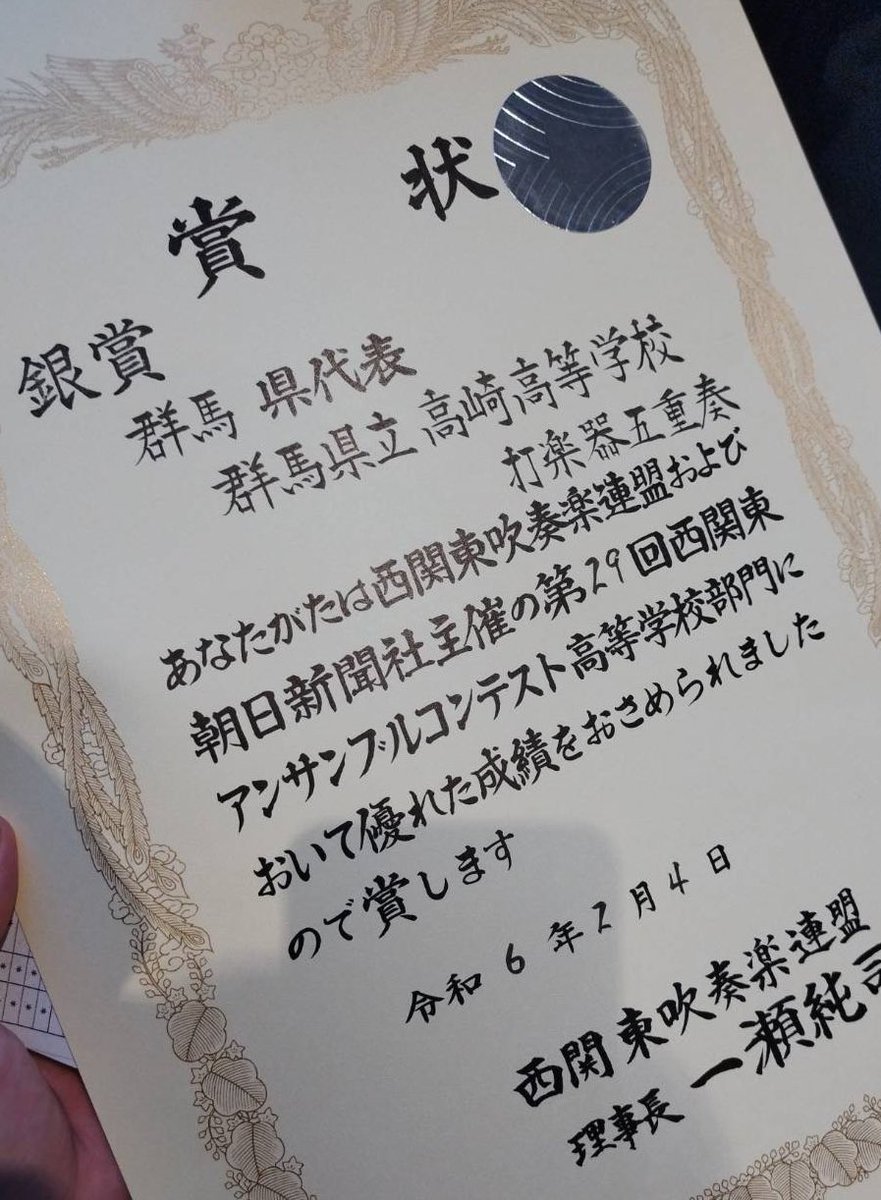 賞状
銀賞
群馬県代表
群馬県立高崎高等学校
打楽器五重奏
あなたがたは西関東吹奏楽連盟および
朝日新聞社主催の第29回西関東
アンサンブルコンテスト高等学校部門に
おいて優れた成績をおさめられました
ので賞します
令和6年2月4日
西関東吹奏楽連盟
理事長 一瀬純司